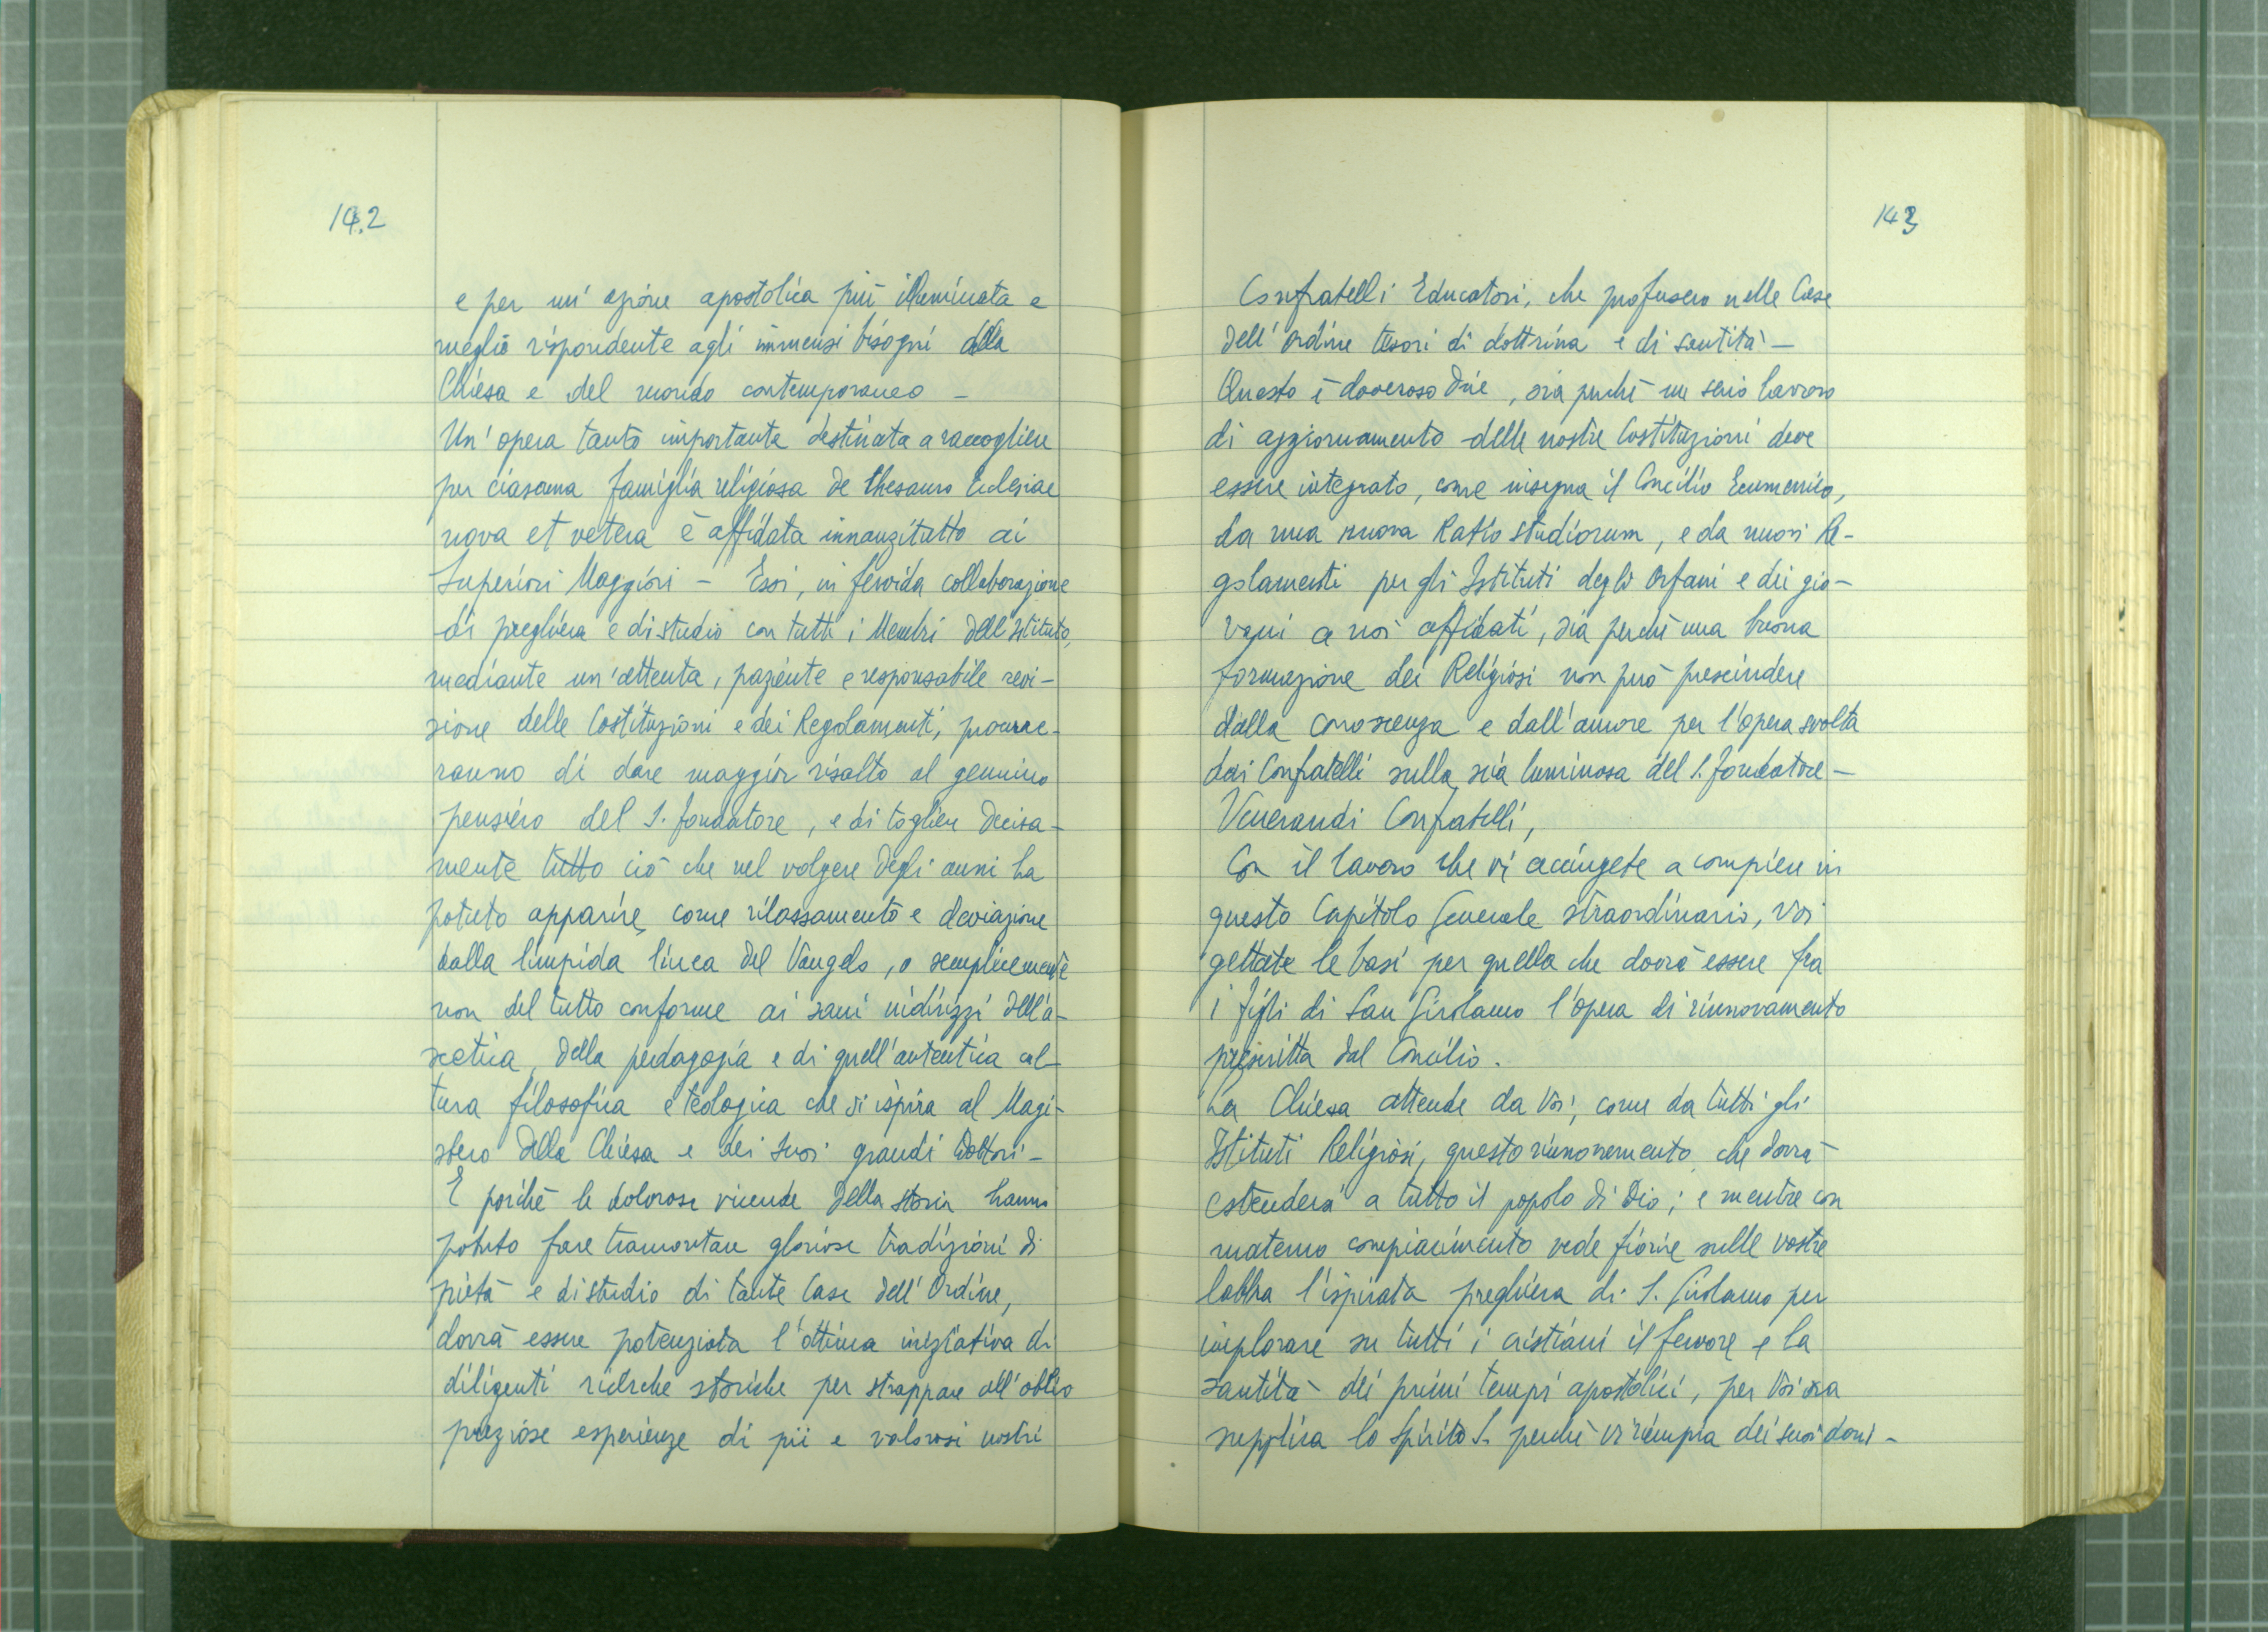 142
e per un' azione apostolica più illuminata e
meglio rispondente agli immensi bisogni della
Chiesa e del mondo contemporaneo -
Un' opera tanto importante destinata a raccogliere
per ciascuna famiglia religiosa de thesauro Ecclesiae
nova et vetera è affidata innanzitutto ai
Superiori Maggiori - Essi, in fervida collaborazione
di preghiera e di studio con tutti i Membri dell'Istituto,
mediante un'attenta, paziente e responsabile revi-
sione delle Costituzioni e dei Regolamenti, procure-
ranno di dare maggior risalto al genuino
pensiero del S. Fondatore, e di togliere decisa-
mente tutto ciò che nel volgere degli anni ha
potuto apparire come rilassamento e deviazione
dalla limpida linea del Vangelo, o semplicemente
non del tutto conforme ai sani indirizzi dell'a-
scetica, della pedagogia e di quell'autentica cul-
tura filosofica e teologica che si ispira al Magi-
stero della Chiesa e dei suoi grandi Dottori -
E poichè le dolorose vicende della storia hanno
potuto fare tramontare gloriose tradizioni di
pietà e di studio di tante Case dell' Ordine,
dovrà essere potenziata l'ottima iniziativa di
diligenti ricerche storiche per strappare all'oblio
preziose esperienze di pii e valorosi nostri
143
Confratelli Educatori, che profusero nelle Case
dell' Ordine tesori di dottrina e di santità -
Questo è doveroso dire, sia perchè un serio lavoro
di aggiornamento delle nostre Costituzioni deve
essere integrato, come insegna il Concilio Ecumenico,
da una nuova Ratio studiorum, e da nuovi Re-
golamenti per gli Istituti degli Orfani e dei gio-
vani a noi affidati, sia perchè una buona
formazione dei Religiosi non può prescindere
dalla conoscenza e dall'amore per l'opera svolta
dai Confratelli sulla scia luminosa del S. Fondatore -
Venerandi Confratelli,
Con il lavoro che vi accingete a compiere in
questo Capitolo Generale straordinario, Voi
gettate le basi per quella che dovrà essere fra
i figli di San Girolamo l'opera di rinnovamento
prescritta dal Concilio.
La Chiesa attende da Voi, come da tutti gli
Istituti Religiosi, questo rinnovamento che dovrà
estendersi a tutto il popolo di Dio; e mentre con
materno compiacimento vede fiorire sulle vostre
labbra l'ispirata preghiera di S. Girolamo per
implorare su tutti i cristiani il fervore e la
santità dei primi tempi apostolici, per Voi essa
supplica lo Spirito S. perchè vi riempia dei suoi doni -